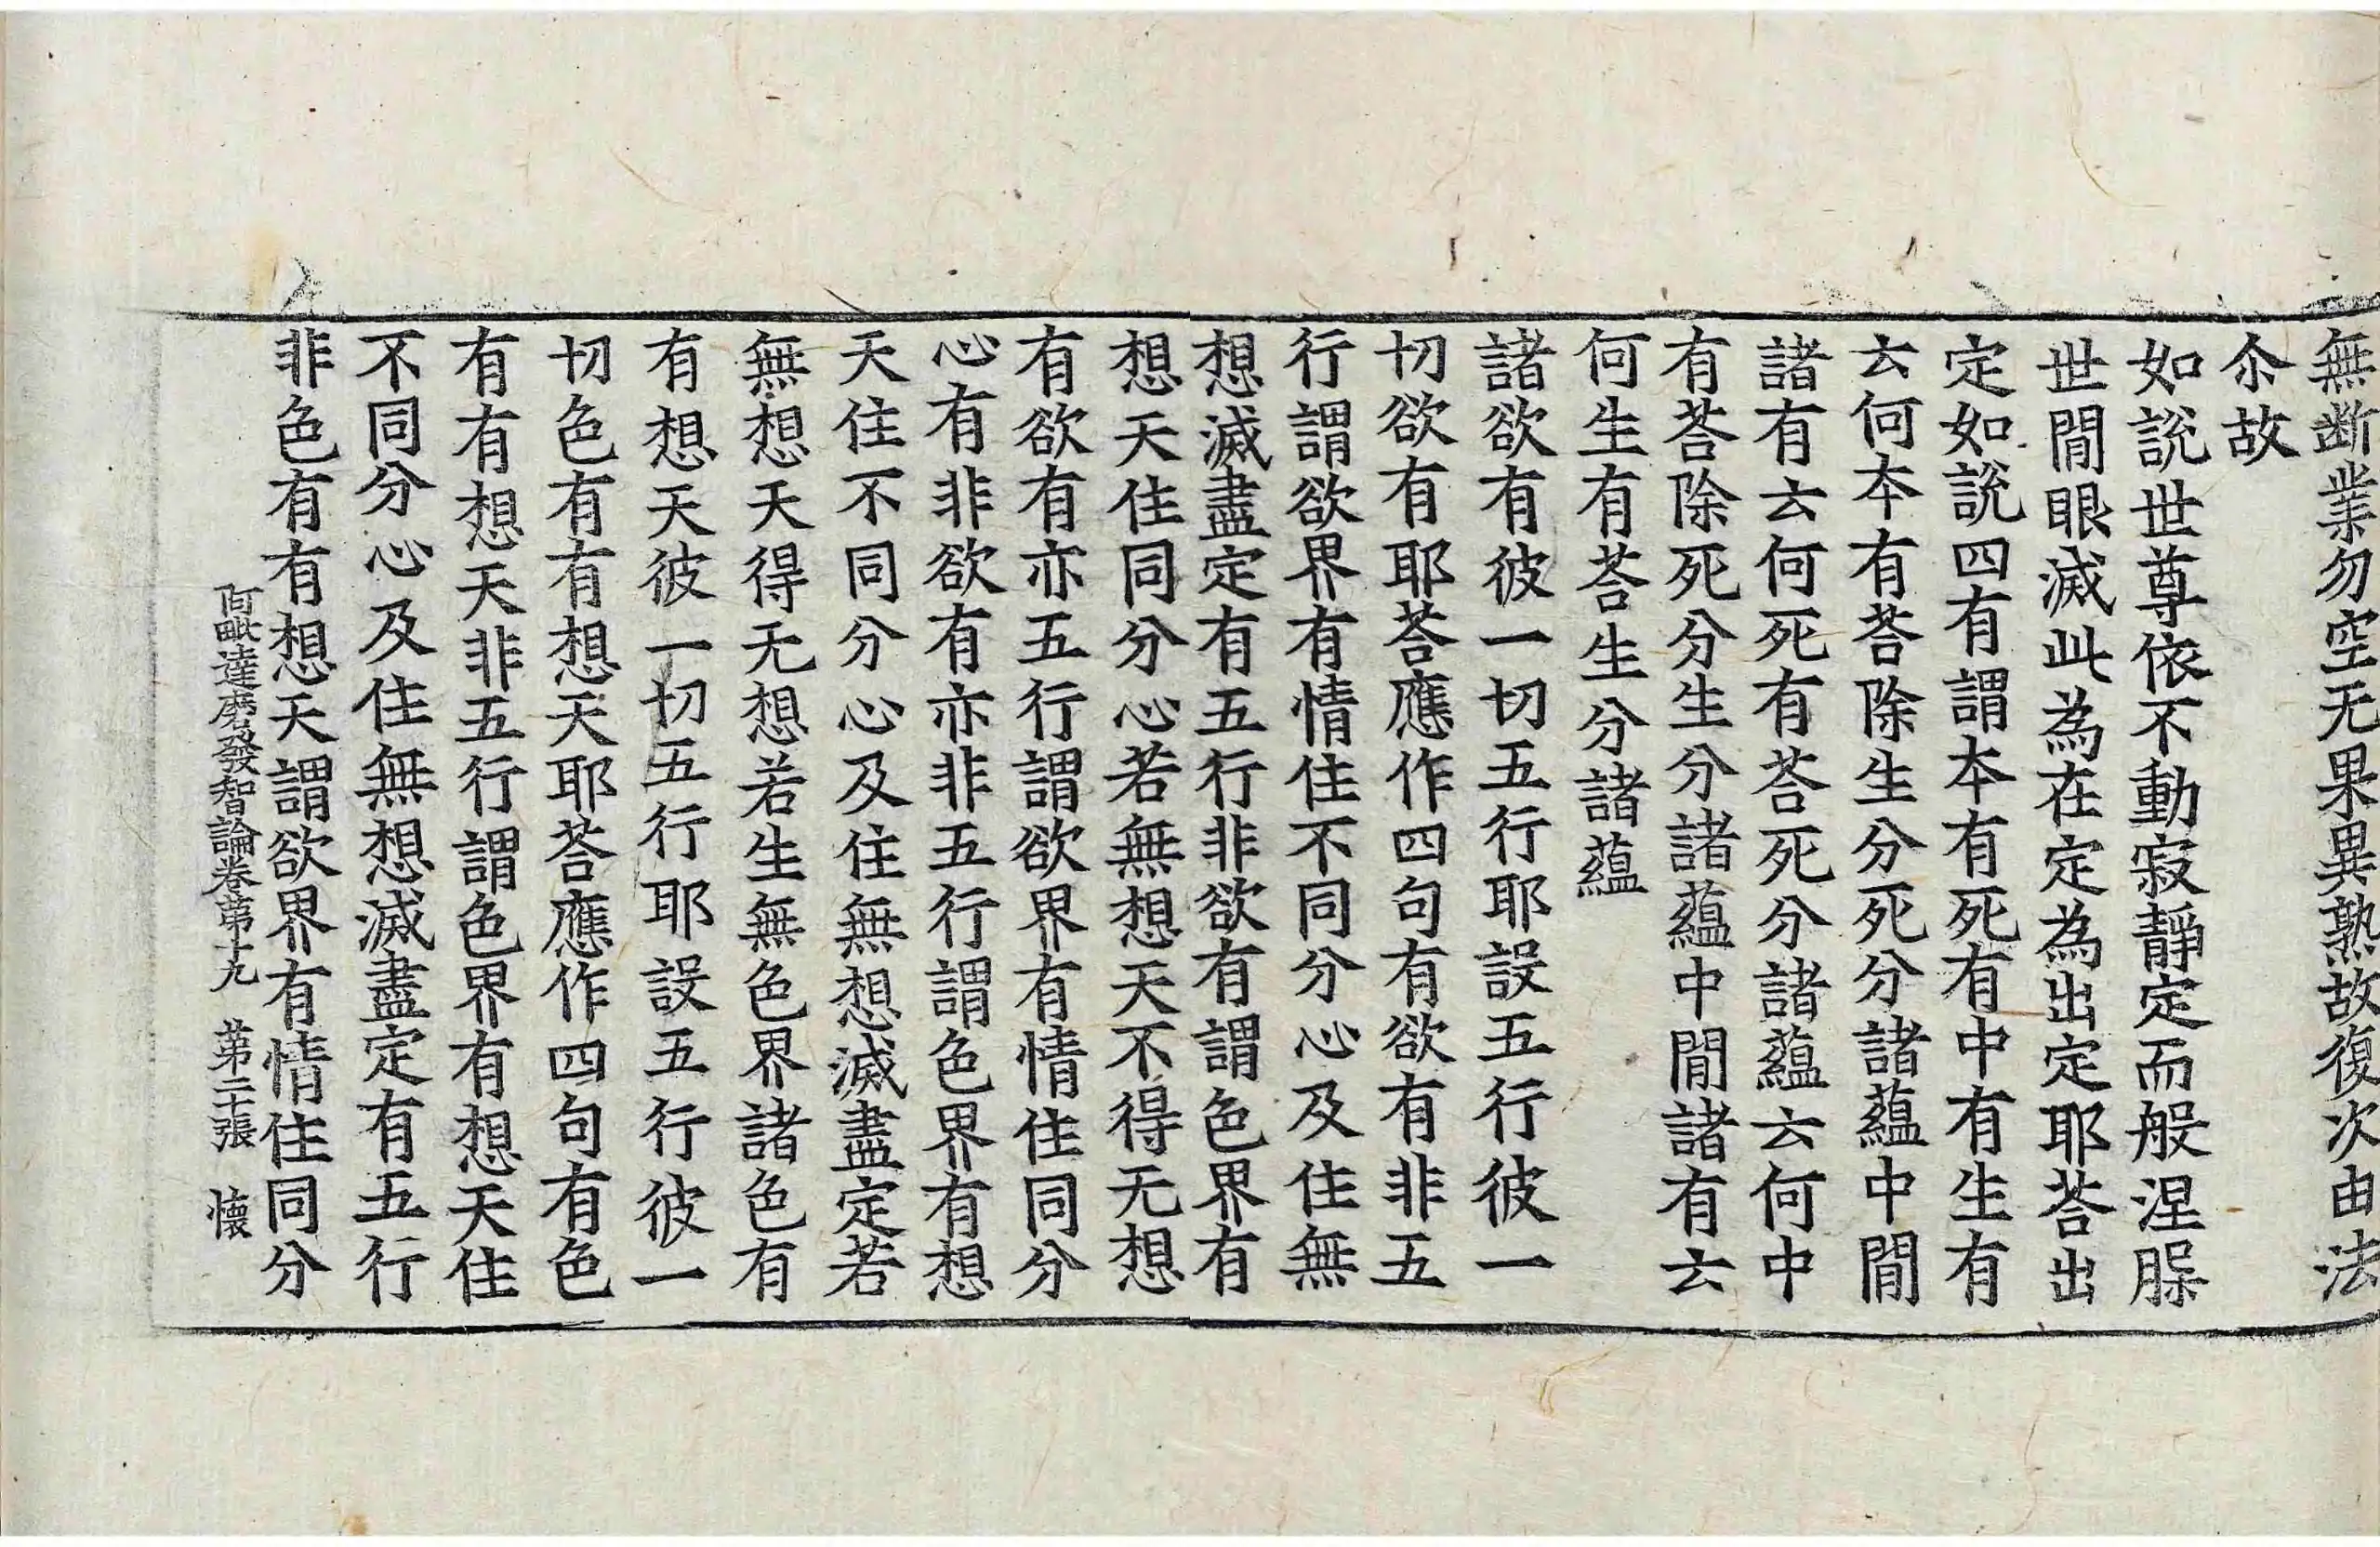 無断業勿空无果異熟故復次由法
尒故
如說世尊依不動寂靜定而般涅槃
世間眼滅此為在定為出定耶荅出
定如說四有謂本有死有中有生有
云何本有荅除生分死分諸蘊中間
諸有云何死有荅死分諸蘊云何中
有荅除死分生分諸蘊中間諸有云
何生有荅生分諸蘊
諸欲有彼一切五行耶設五行彼一
切欲有耶荅應作四句有欲有非五
行謂欲界有情住不同分心及住無
想滅盡定有五行非欲有謂色界有
想天住同分心若無想天不得无想
有欲有亦五行謂欲界有情住同分
心有非欲有亦非五行謂色界有想
天住不同分心及住無想滅盡定若
無想天得无想若生無色界諸色有
有想天彼一切五行耶設五行彼一
切色有有想天耶荅應作四句有色
有有想天非五行謂色界有想天住
不同分心及住無想滅盡定有五行
非色有有想天謂欲界有情住同分
阿毗達磨發智論卷苐十九　苐二十張　懷